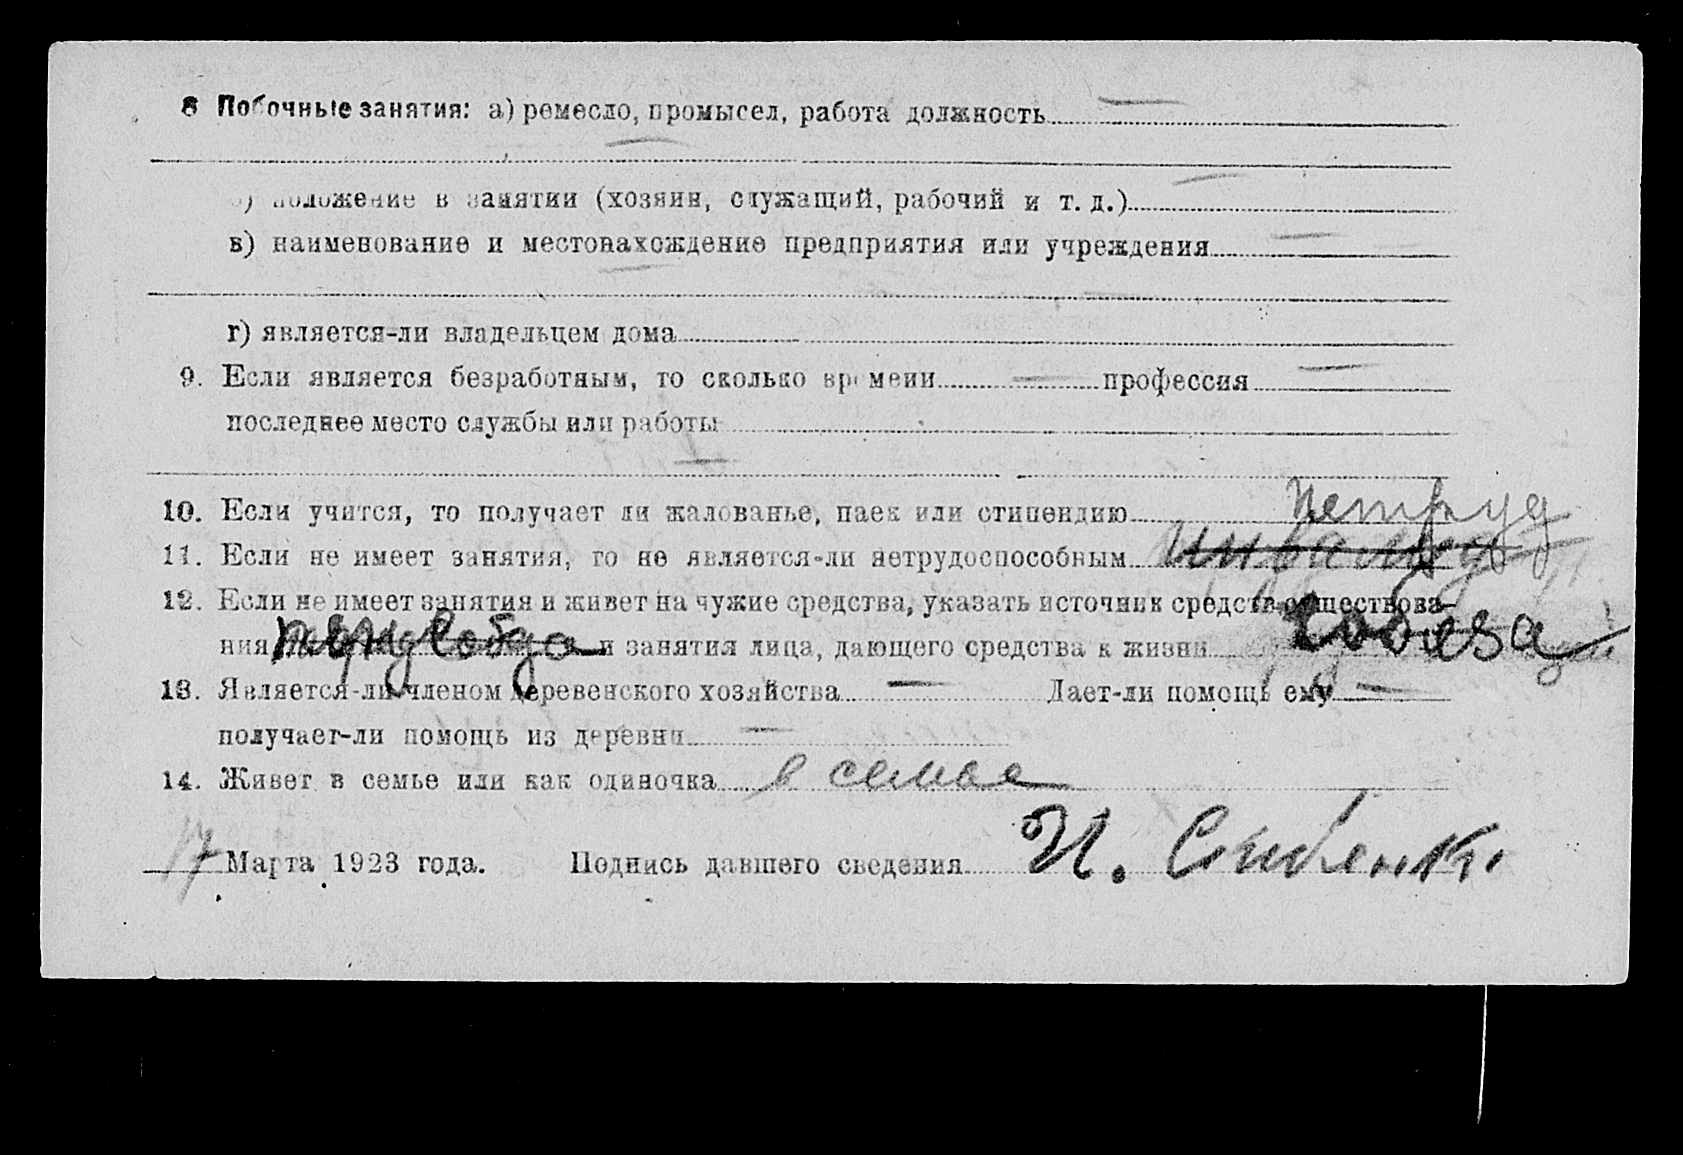 8 Побочные занятия: а) ремесло, промысел, работа должность —
—
б) положение в занятии (хозяин, служащий, рабочий и т. д.) —
в) наименование и местонахождение предприятия или учреждения —
—
г) является-ли владельцем дома
9. Если является безработным, то сколько времени — профессия —
последнее место службы или работы
—
10. Если учится, то получает ли жалованье, паек или стипендию
11. Если не имеет занятия, то не является-ли нетрудоспособным
12. Если не имеет занятия и живет на чужие средства, указать источник средств существова-
ния и занятия лица, дающего средства к жизни
13. Является-ли членом деревенского хозяйства — Дает-ли помощь ему —
получает-ли помощь из деревни —
14. Живет в семье или как одиночка в семье
17 Марта 1923 года. Подпись давшего сведения И.